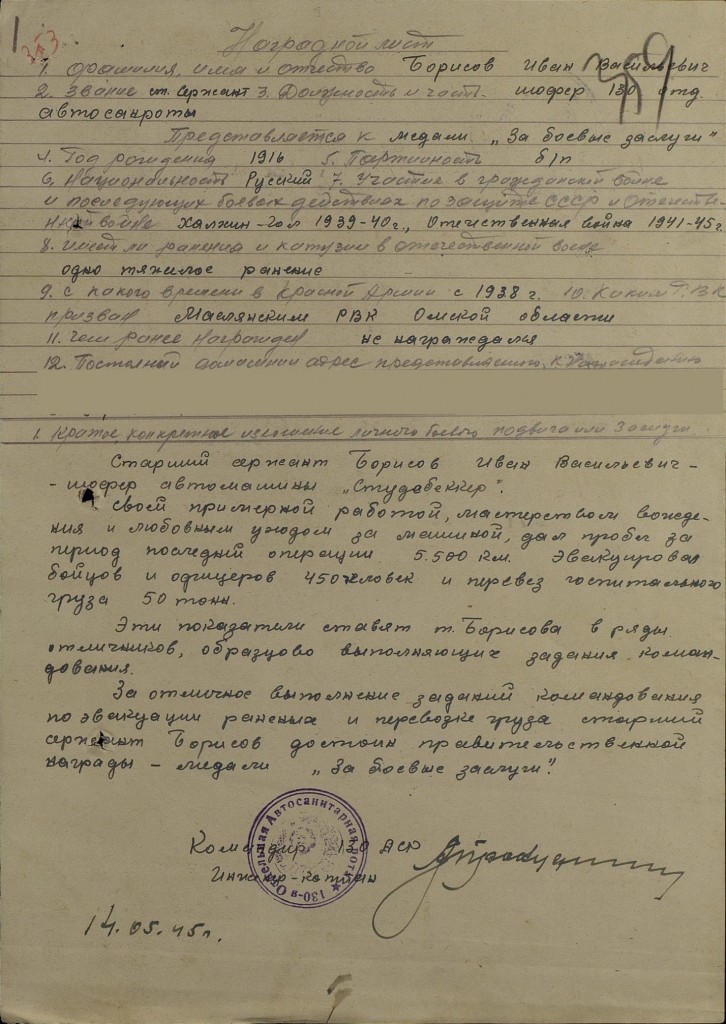 1
3п3
Наградной лист
1. Фамилия, имя и отчество Борисов Иван Васильевич
2. Звание ст. сержант 3. Должность и часть шофер 130 отд.
автосанроты
Представляется к медали „За боевые заслуги"
4. Год рождения 1916 5. Партийность б/п
6. Национальность Русский 7. Участие в гражданской войне
и последующих боевых действиях по защите СССР и отечестве-
нной войне Халхин-гол 1939-40 г., Отечественная война 1941-45 г.
8. Имеет ли ранения и контузии в отечественной войне
одно тяжелое ранение
9. с какого времени в Красной Армии с 1938 г. 10. Каким РВК
призван Маслянским РВК Омской области
11. Чем ранее награжден не награждался
12. Постоянный домашний адрес представляемого к награждению
1. Краткое, конкретное изложение личного боевого подвига или заслуги
Старший сержант Борисов Иван Васильевич -
- шофер автомашины „Студебеккер".
Своей примерной работой, мастерством вожде-
ния и любовным уходом за машиной, дал пробег за
период последней операции 5.500 км. Эвакуировал
бойцов и офицеров 450 человек и перевез госпитального
груза 50 тонн.
Эти показатели ставят т. Борисова в ряды
отличников, образцово выполняющих задания коман-
дования.
За отличное выполнение заданий командования
по эвакуации раненых и перевозке груза старший
сержант Борисов достоин правительственной
награды - медали „За боевые заслуги".
Командир 130 АСР
Инженер-капитан
130-я Отдельная Автосанитарная рота
14.05.45 г.